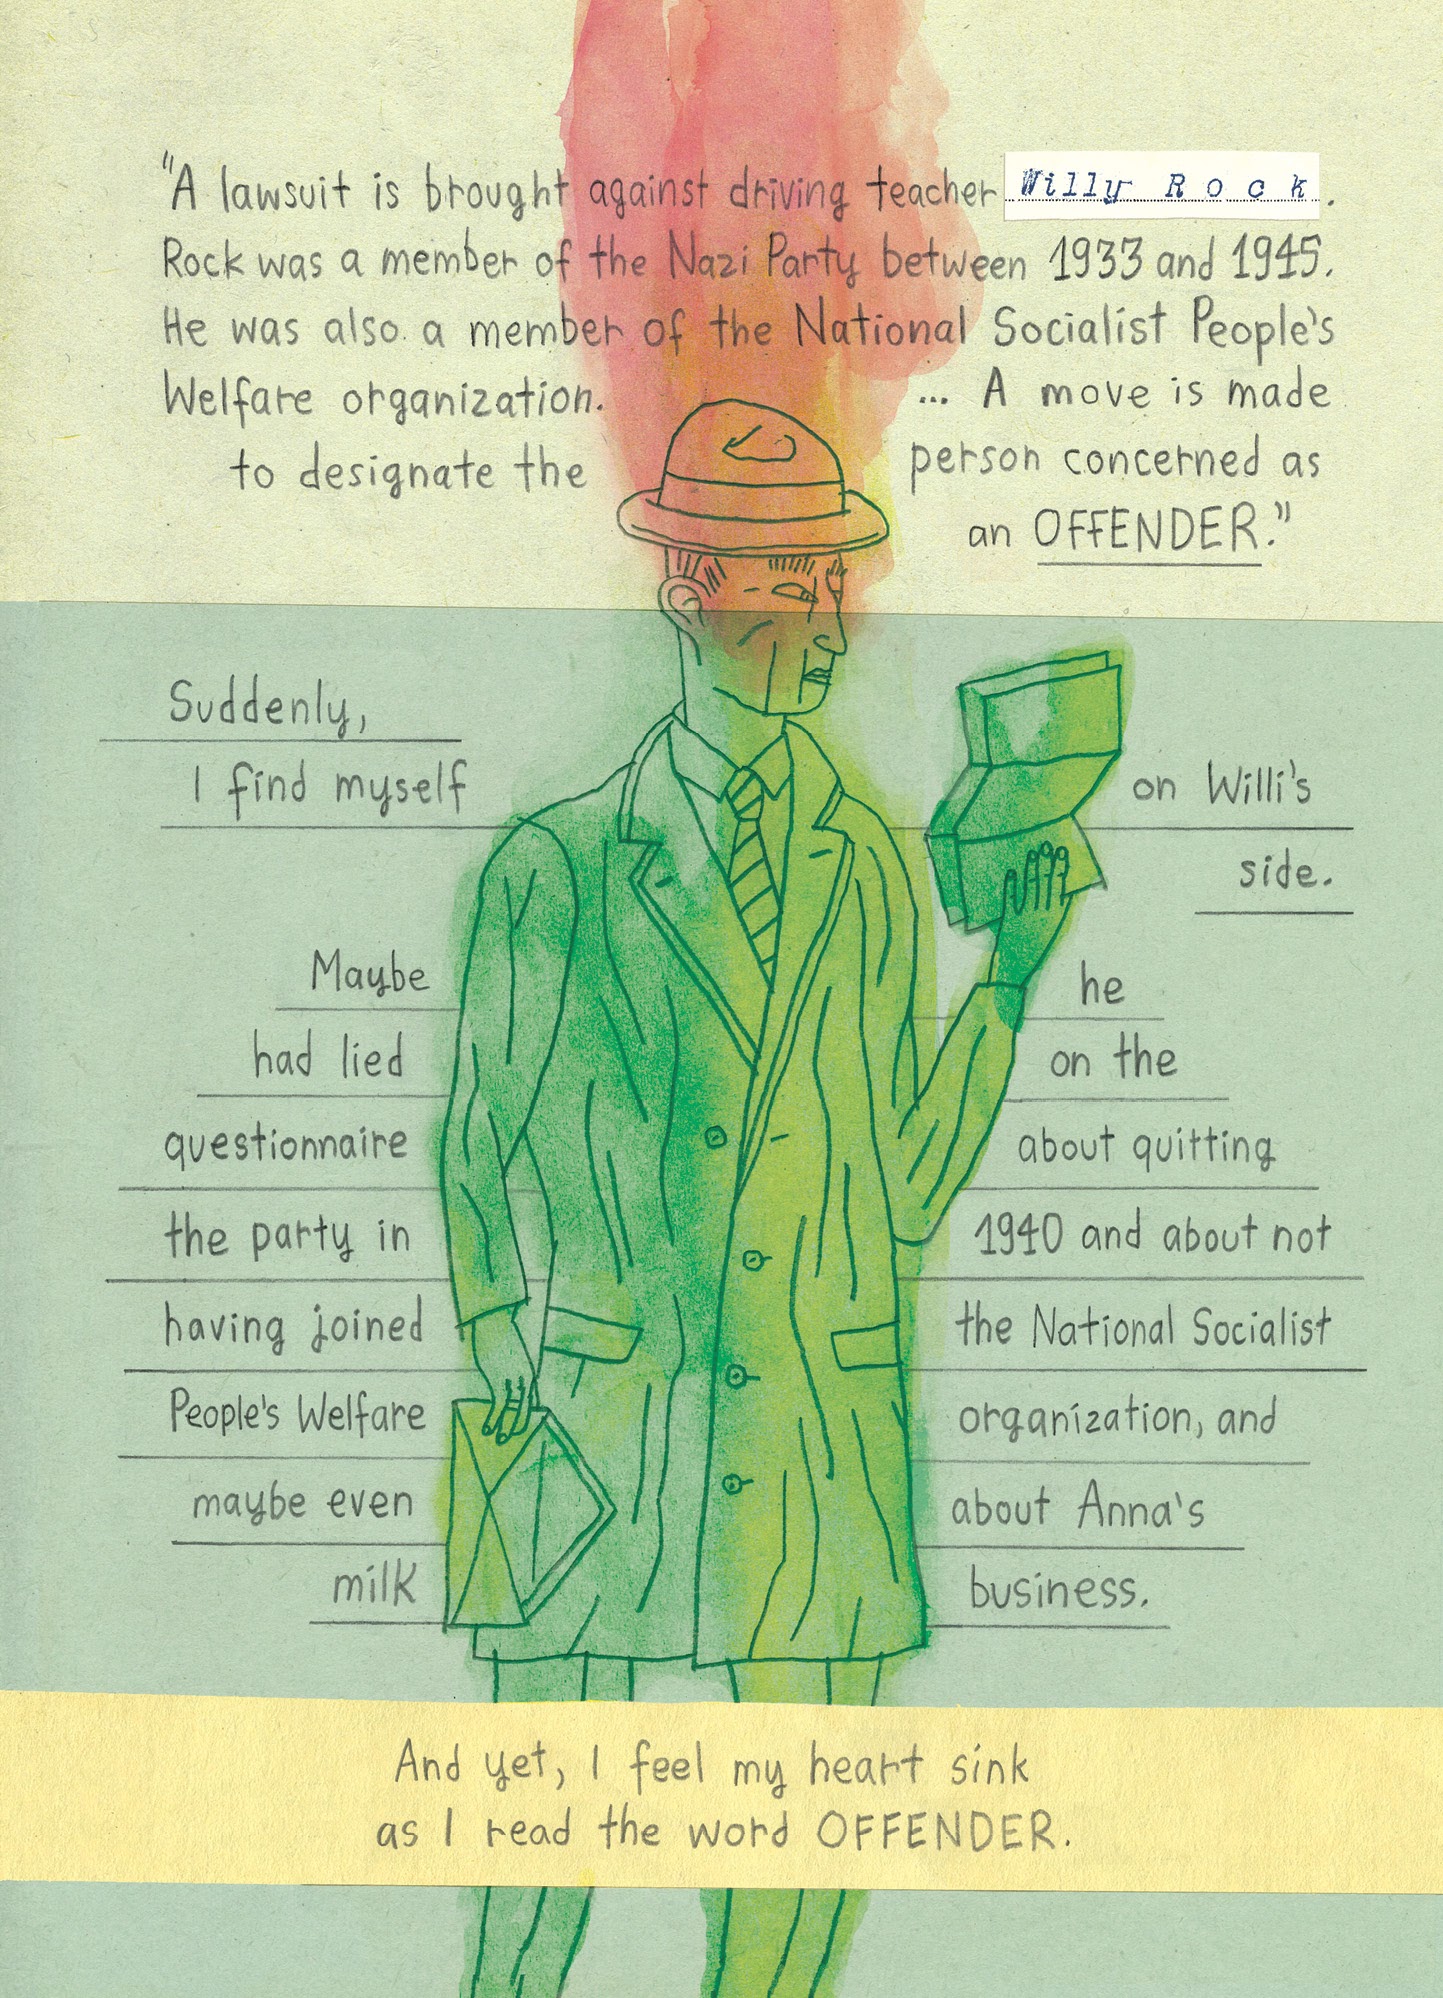 "A lawsuit is brought against driving teacher Willy Rock.
Rock was a member of the Nazi Party between 1933 and 1945.
He was also a member of the National Socialist People's
Welfare organization. ... A move is made
to designate the person concerned as
an OFFENDER."
Suddenly,
I find myself on Willi's
side.
Maybe he
had lied on the
questionnaire about quitting
the party in 1940 and about not
having joined the National Socialist
People's Welfare organization, and
maybe even about Anna's
milk business.
And yet, I feel my heart sink
as I read the word OFFENDER.